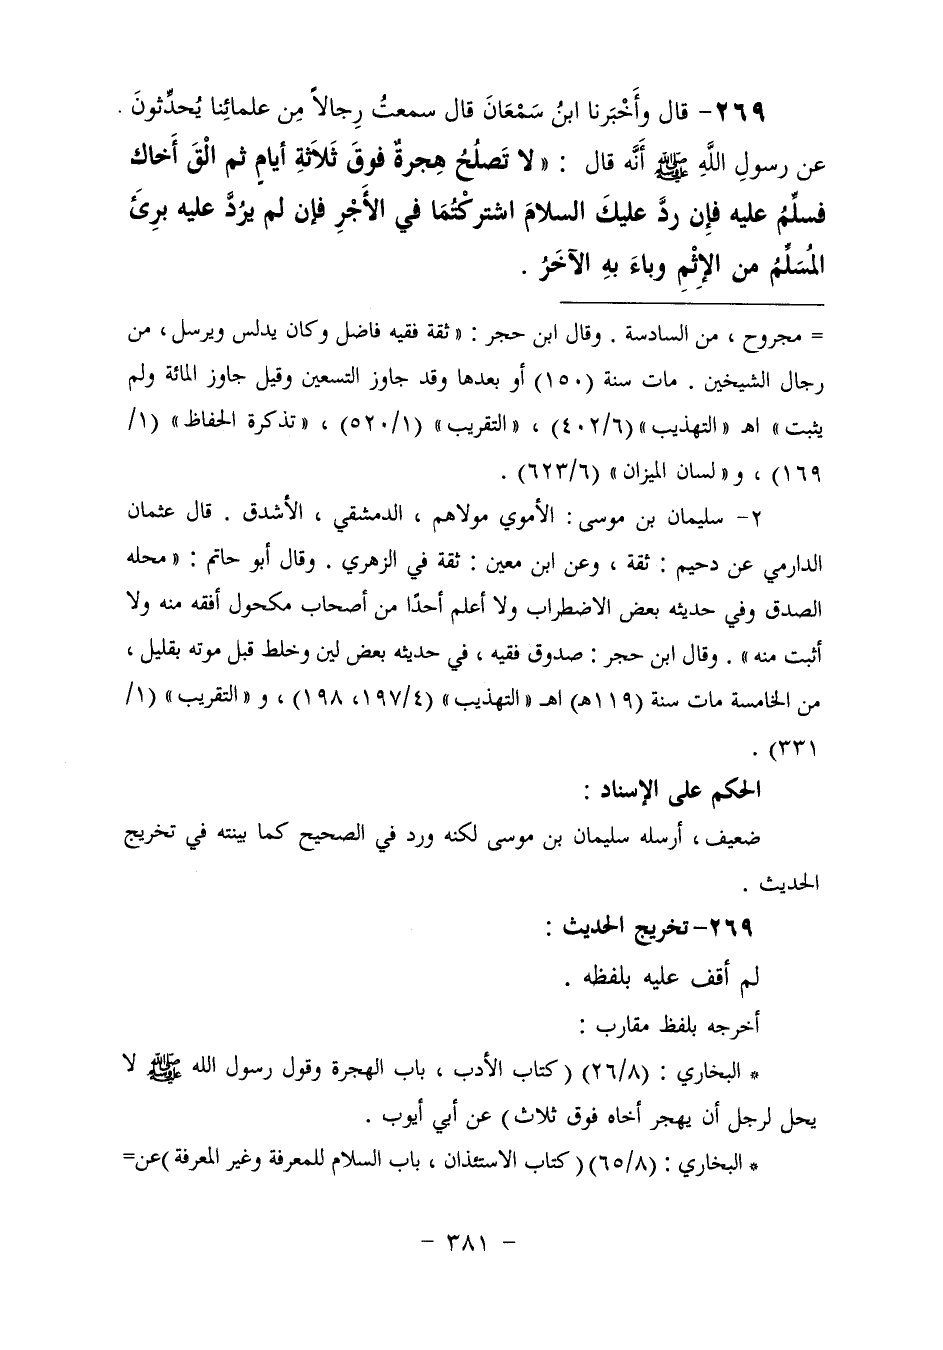 ٢٦٩- قال وأَخْبَرنا ابنُ سَمْعَانَ قال سمعتُ رِجالاً مِن علمائِنا يُحدِّثونَ .
عن رسولِ اللَّهِ ﷺ أنَّه قال : « لا تَصلُحُ هِجرةٌ فوقَ ثَلاَثةِ أيامٍ ثم الْقَ أَخاك
فسلِّمُ عليه فإِن ردَّ عليكَ السلامَ اشتركْتُمَا في الأَجْرِ فإن لم يرُدَّ عليه برِئَ
المُسَلِّمُ من الإِثْمِ وباءَ بهِ الآخَرُ .
= مجروح ، من السادسة . وقال ابن حجر : « ثقة فقيه فاضل وكان يدلس ويرسل ، من
رجال الشيخين . مات سنة (١٥٠) أو بعدها وقد جاوز التسعين وقيل جاوز المائة ولم
يثبت » اهـ « التهذيب » (٤٠٢/٦) ، « التقريب » (٥٢٠/١) ، « تذكرة الحفاظ » (١/
١٦٩) ، و « لسان الميزان » (٦٢٣/٦) .
٢- سليمان بن موسى : الأموي مولاهم ، الدمشقي ، الأشدق . قال عثمان
الدارمي عن دحيم : ثقة ، وعن ابن معين : ثقة في الزهري . وقال أبو حاتم : « محله
الصدق وفي حديثه بعض الاضطراب ولا أعلم أحدًا من أصحاب مكحول أفقه منه ولا
أثبت منه » . وقال ابن حجر : صدوق فقيه ، في حديثه بعض لين وخلط قبل موته بقليل ،
من الخامسة مات سنة (١١٩هـ) اهـ « التهذيب » (١٩٧/٤، ١٩٨) ، و « التقريب » (١/
٣٣١) .
الحكم على الإسناد :
ضعيف ، أرسله سليمان بن موسى لكنه ورد في الصحيح كما بينته في تخريج
الحديث .
٢٦٩- تخريج الحديث :
لم أقف عليه بلفظه .
أخرجه بلفظ مقارب :
* البخاري : (٢٦/٨) ( كتاب الأدب ، باب الهجرة وقول رسول الله ﷺ لا
يحل لرجل أن يهجر أخاه فوق ثلاث ) عن أبي أيوب .
* البخاري : (٦٥/٨) ( كتاب الاستئذان ، باب السلام للمعرفة وغير المعرفة )عن=
- ٣٨١ -